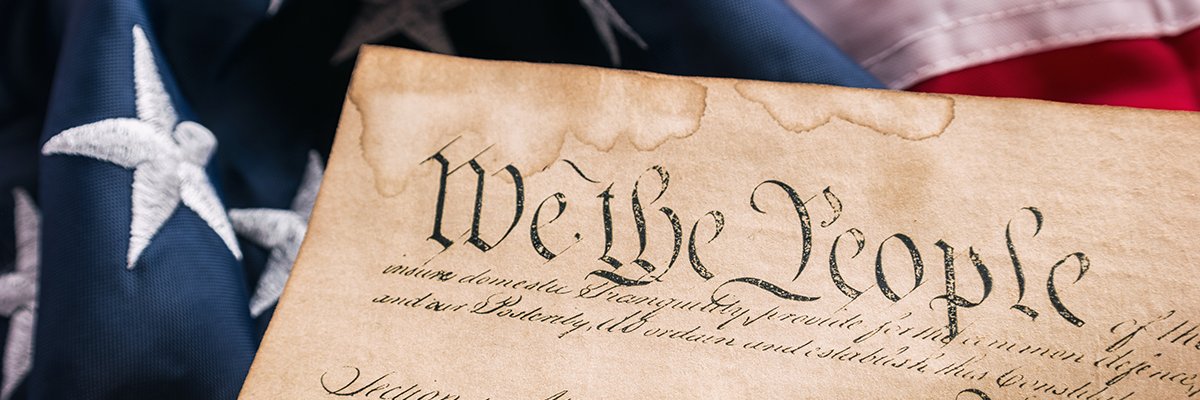 We the People of the
insure domestic Tranquility, provide for the common defence,
and our Posterity, do ordain and establish this Constit
Section